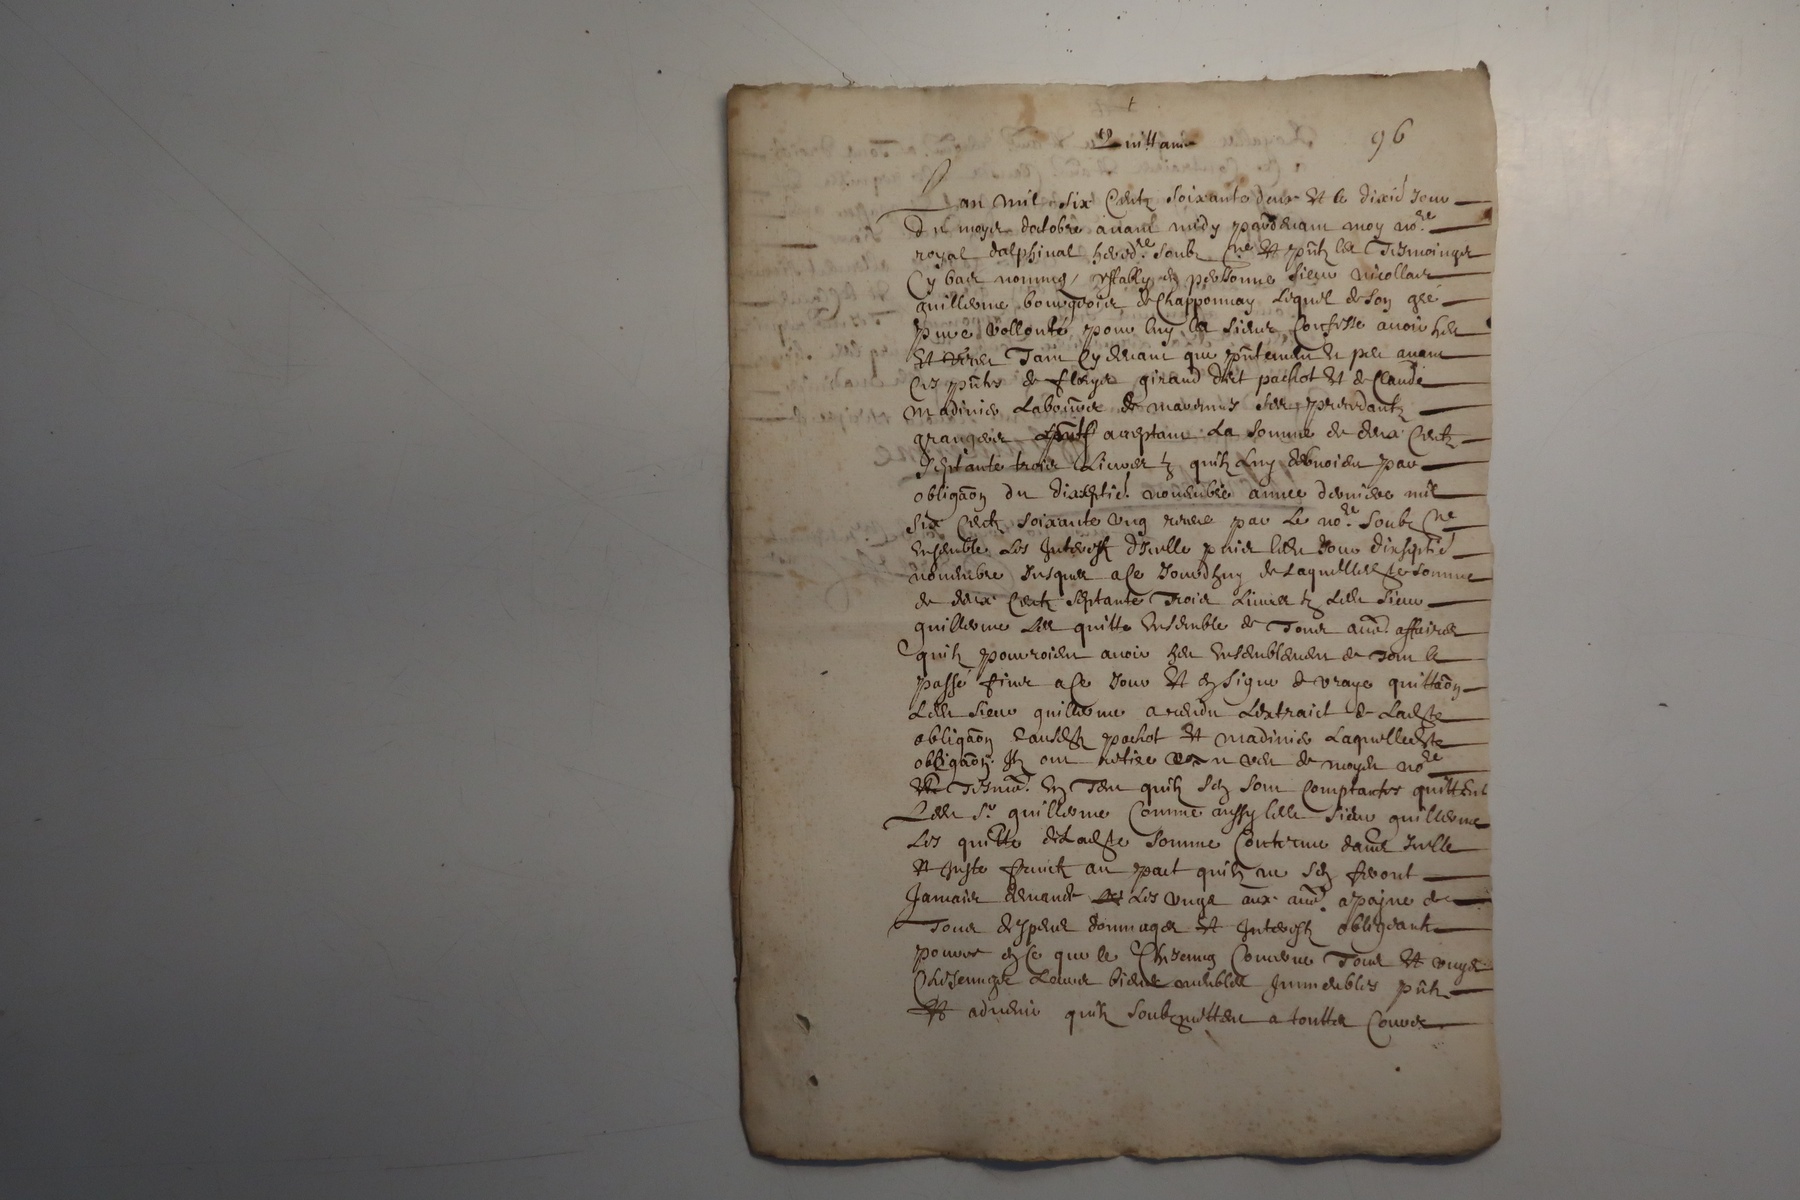 Quittance
96
L an mil six Centz soixante deux et le dixie Jour
du moys doctobre avant midy pardevant moy nore
royal dalphinal heredre soubz ne et pntz les Tesmoings
Cy bas nommes, estably en personne sieur nicollas
guillerme bourgeois de Chapponnay Lequel de son gre
pure vollonté, pour luy les siens Confesse avoir heu
et Tant Cy devant que pntement et peu avant
Ces pntes de giraud dict pachot et de Claude
madinier Labourer de marennes
grangers acceptant La somme de deux Centz
septante trois Livres tz quilz luy debvoient par
obligaon du dixseptie novembre annee derniere mil
six Centz soixante ung receue par Le nore soubz ne
ensemble Les Interestz dIcelle puis led Jour dixseptie
novembre Jusques a Ce Jourdhuy de Laquelle dte somme
de deux Centz septante Trois Livres tz Led sieur
guillerme Les quitte ensemble de Tous aues affaires
quilz pourroient avoir heu ensemblement de Tout le
passé Jour et en signe de vraye quittaon
Led sieur guillerme a rendu Lextraict de Ladte
obligaon pachot et madinier Laquelle dte
obligaon Ilz ont retire de moyd nore
et Tesmo quilz sen sont Comptantes quittent
Led Sr guillerme Comme aussy led sieur guillerme
Les quitte de Ladte somme Contenue dans Icelle
au pact quilz ne sen feront
Jamais demande Les ungs aux aues a payne de
Tous despens dommages et Interestz obligeantz
pource en Ce que le Chescung Concerne Tous et ungs
Chescungs Leurs biens meubles Immeubles pntz
et advenir quilz soubzmettent a touttes Cours